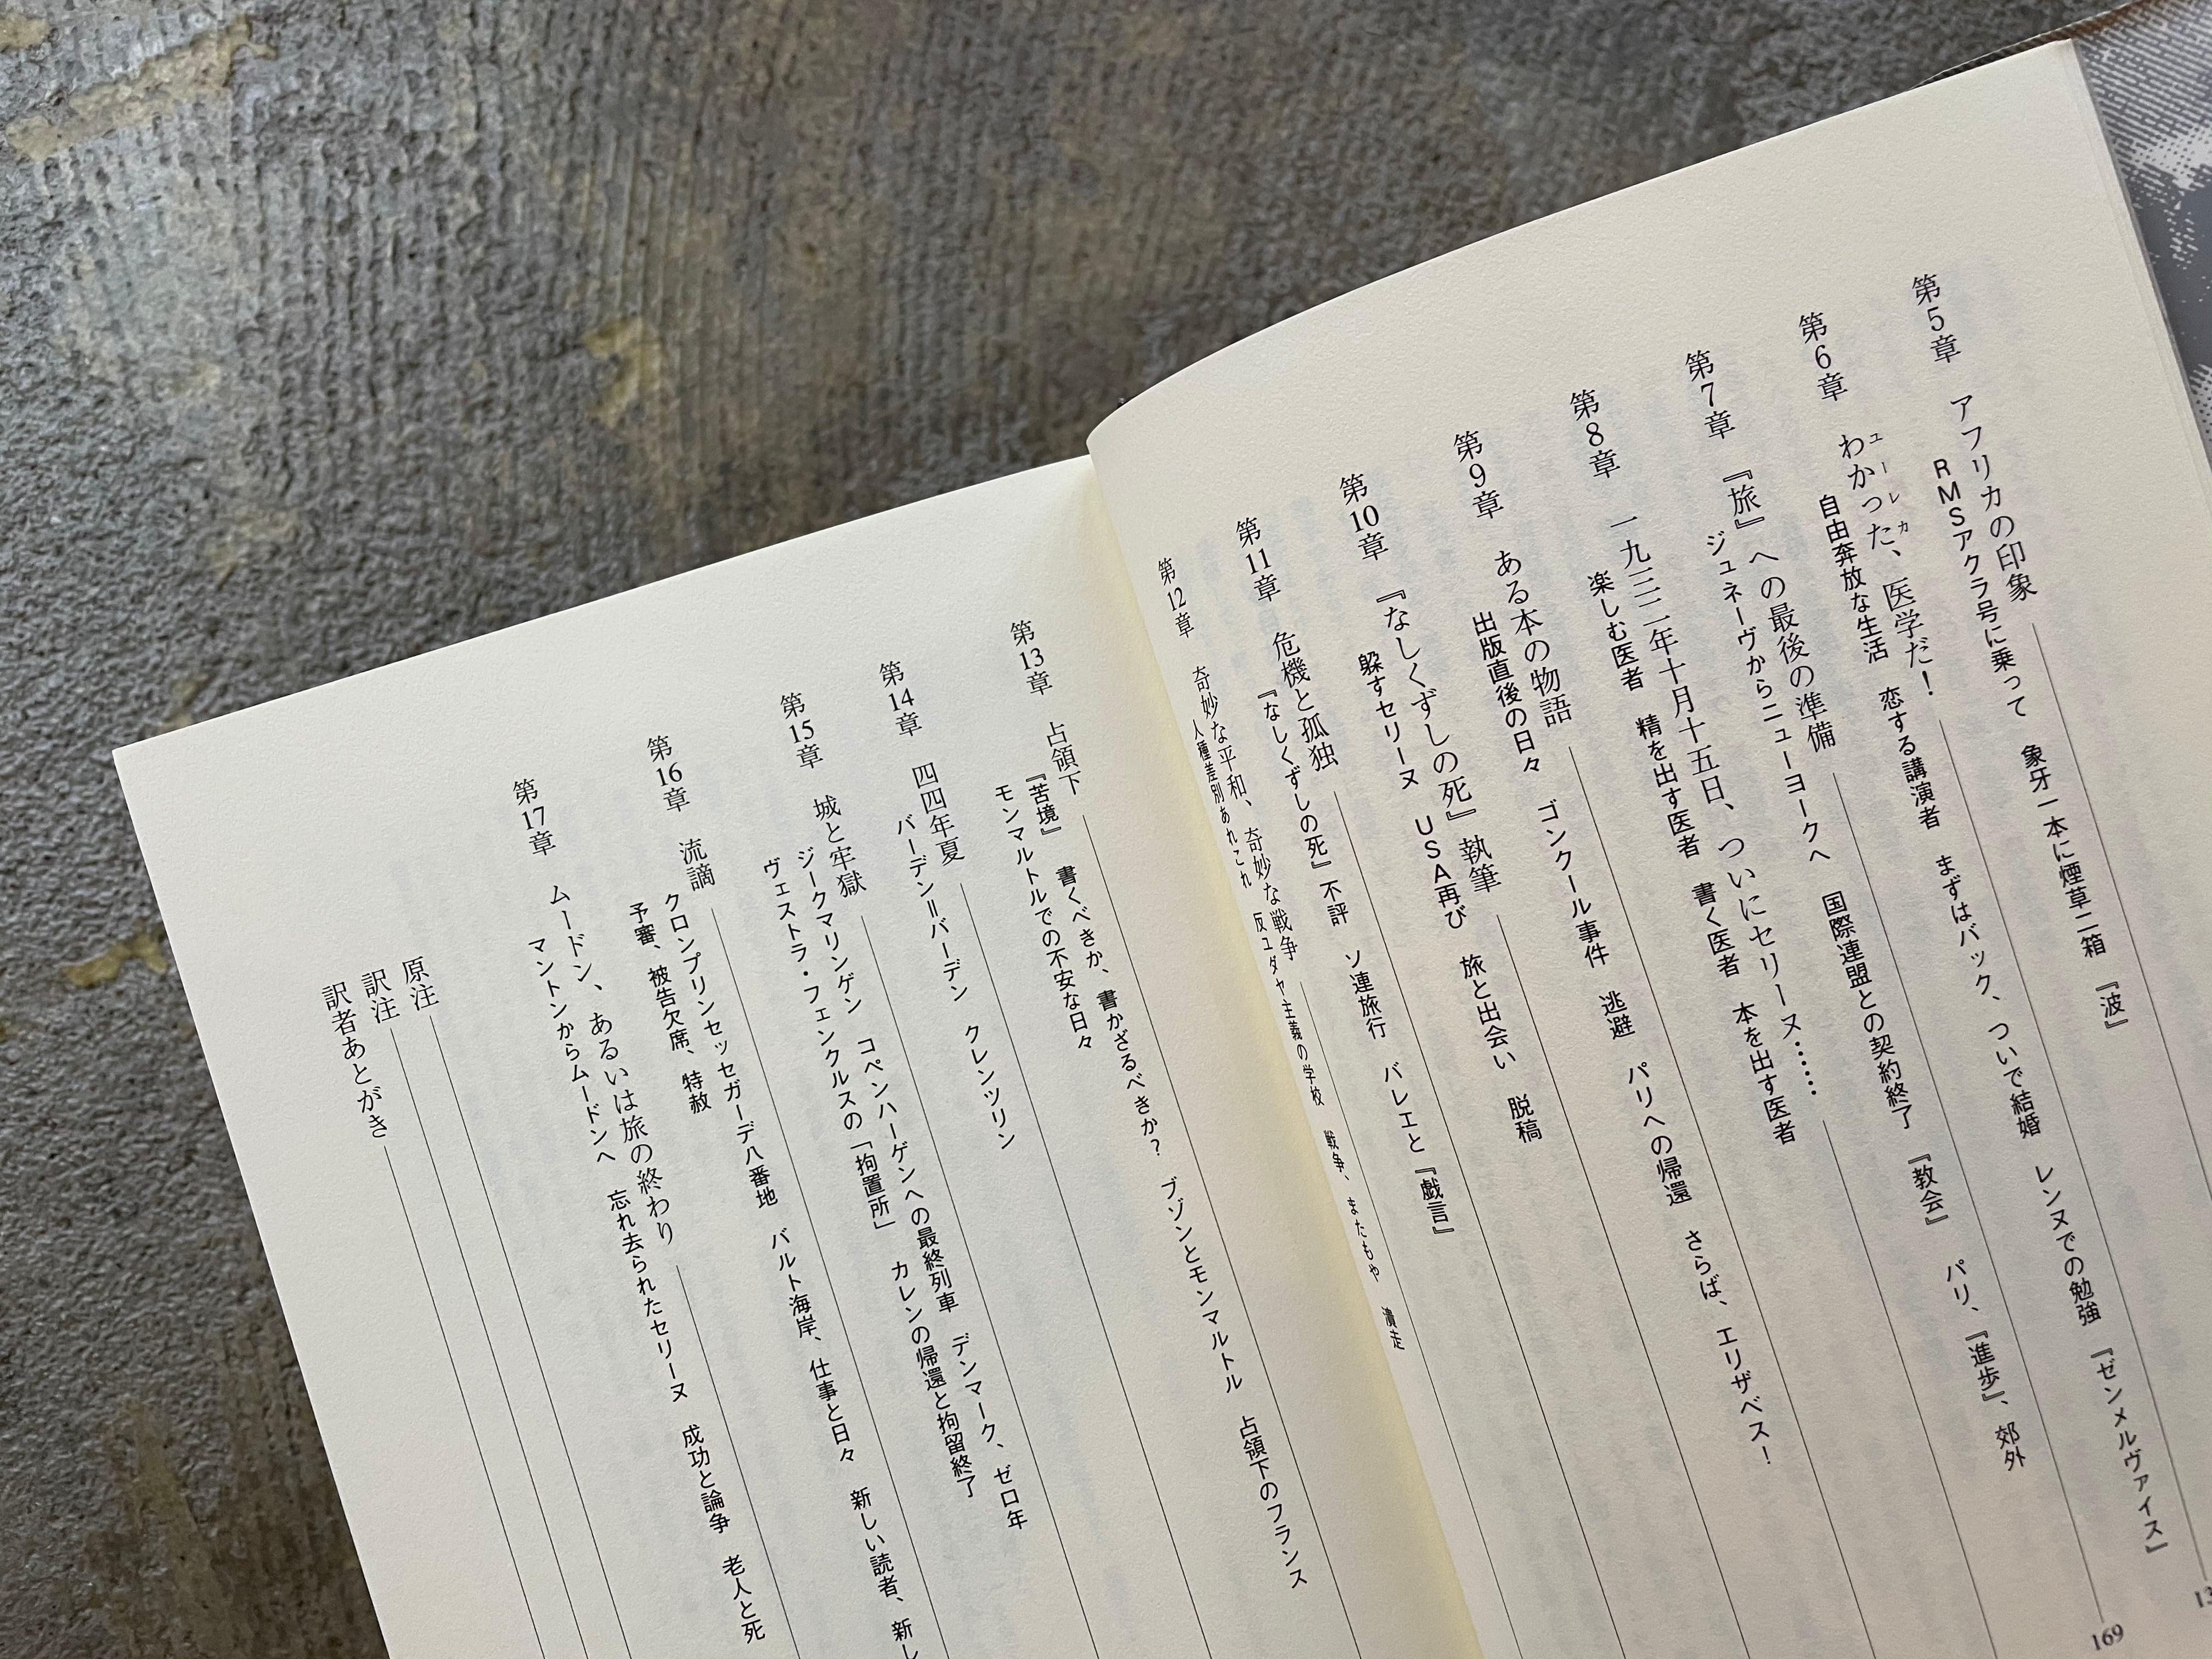 第5章 アフリカの印象
RMSアクラ号に乗って 象牙一本に煙草二箱 『波』
第6章 わかった、医学だ!
ユーレカ
自由奔放な生活 恋する講演者 まずはパック、ついで結婚 レンヌでの勉強 『ゼンメルヴァイス』
169
第7章 『旅』への最後の準備
ジュネーヴからニューヨークへ 国際連盟との契約終了 『教会』 パリ、『進歩』、郊外
第8章 一九三二年十月十五日、ついにセリーヌ……
楽しむ医者 精を出す医者 書く医者 本を出す医者
第9章 ある本の物語
出版直後の日々 ゴンクール事件 逃避 パリへの帰還 さらば、エリザベス!
第10章 『なしくずしの死』執筆
躱すセリーヌ USA再び 旅と出会い 脱稿
第11章 危機と孤独
『なしくずしの死』不評 ソ連旅行 バレエと『戯言』
第12章 奇妙な平和、奇妙な戦争
人種差別あれこれ 反ユダヤ主義の学校 戦争、またもや 潰走
第13章 占領下
『苦境』 書くべきか、書かざるべきか? ブゾンとモンマルトル 占領下のフランス
モンマルトルでの不安な日々
第14章 四四年夏
バーデン=バーデン クレンツリン
第15章 城と牢獄
ジークマリンゲン コペンハーゲンへの最終列車 デンマーク、ゼロ年
ヴェストラ・フェンクルスの「拘置所」 カレンの帰還と拘留終了
第16章 流謫
クロンプリンセッセガーデ八番地 バルト海岸、仕事と日々 新しい読者、新し
予審、被告欠席、特赦
第17章 ムードン、あるいは旅の終わり
マントンからムードンへ 忘れ去られたセリーヌ 成功と論争 老人と死
原注
訳注
訳者あとがき